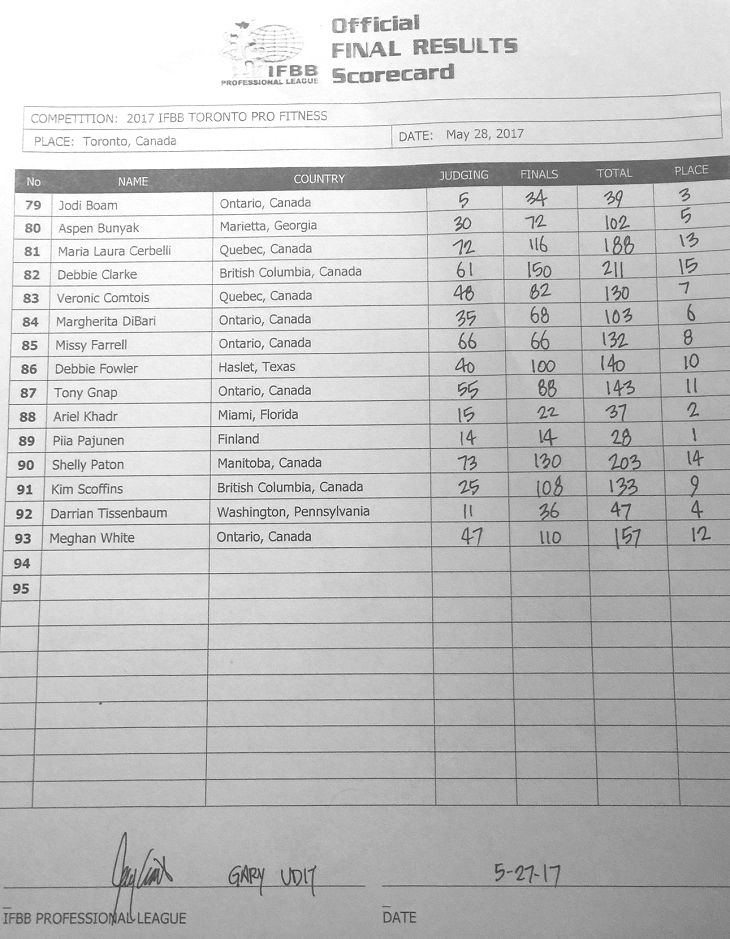 Official
FINAL RESULTS
Scorecard
IFBB
PROFESSIONAL LEAGUE
COMPETITION: 2017 IFBB TORONTO PRO FITNESS
PLACE: Toronto, Canada DATE: May 28, 2017
No NAME COUNTRY JUDGING FINALS TOTAL PLACE
79 Jodi Boam Ontario, Canada 5 34 39 3
80 Aspen Bunyak Marietta, Georgia 30 72 102 5
81 Maria Laura Cerbelli Quebec, Canada 72 116 188 13
82 Debbie Clarke British Columbia, Canada 61 150 211 15
83 Veronic Comtois Quebec, Canada 48 82 130 7
84 Margherita DiBari Ontario, Canada 35 68 103 6
85 Missy Farrell Ontario, Canada 66 66 132 8
86 Debbie Fowler Haslet, Texas 40 100 140 10
87 Tony Gnap Ontario, Canada 55 88 143 11
88 Ariel Khadr Miami, Florida 15 22 37 2
89 Piia Pajunen Finland 14 14 28 1
90 Shelly Paton Manitoba, Canada 73 130 203 14
91 Kim Scoffins British Columbia, Canada 25 108 133 9
92 Darrian Tissenbaum Washington, Pennsylvania 11 36 47 4
93 Meghan White Ontario, Canada 47 110 157 12
94
95
GARY UDIT 5-27-17
IFBB PROFESSIONAL LEAGUE DATE